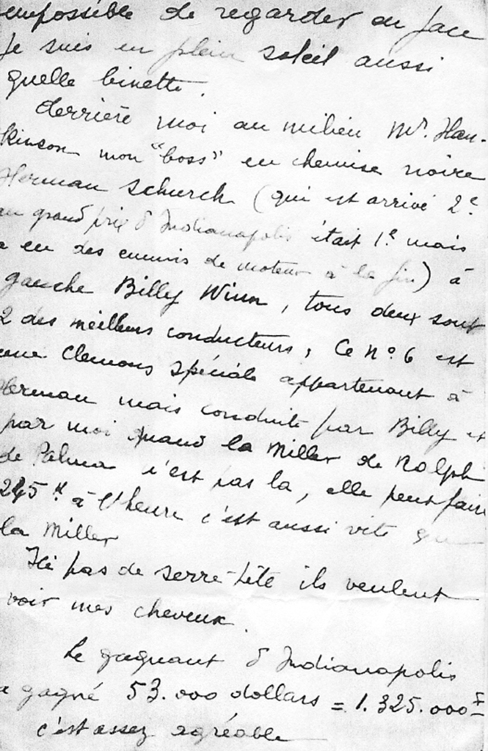 impossible de regarder en face
Je suis en plein soleil aussi
quelle binette.
derrière moi au milieu Mr. Han-
kinson mon "boss" en chemise noire
Herman Schurch (qui est arrivé 2e
au grand prix d'Indianapolis était 1e mais
a eu des ennuis de moteur à la fin) à
gauche Billy Winn, tous deux sont
2 des meilleurs conducteurs, Ce no 6 est
une Clemons spéciale appartenant à
Herman mais conduite par Billy et
par moi quand la Miller de Ralph
de Palma n'est pas la, elle peut faire
245 k à l'heure c'est aussi vite que
la Miller
Ici pas de serre-tête ils veulent
voir mes cheveux.
Le gagnant d'Indianapolis
a gagné 53.000 dollars = 1.325.000 F
c'est assez agréable